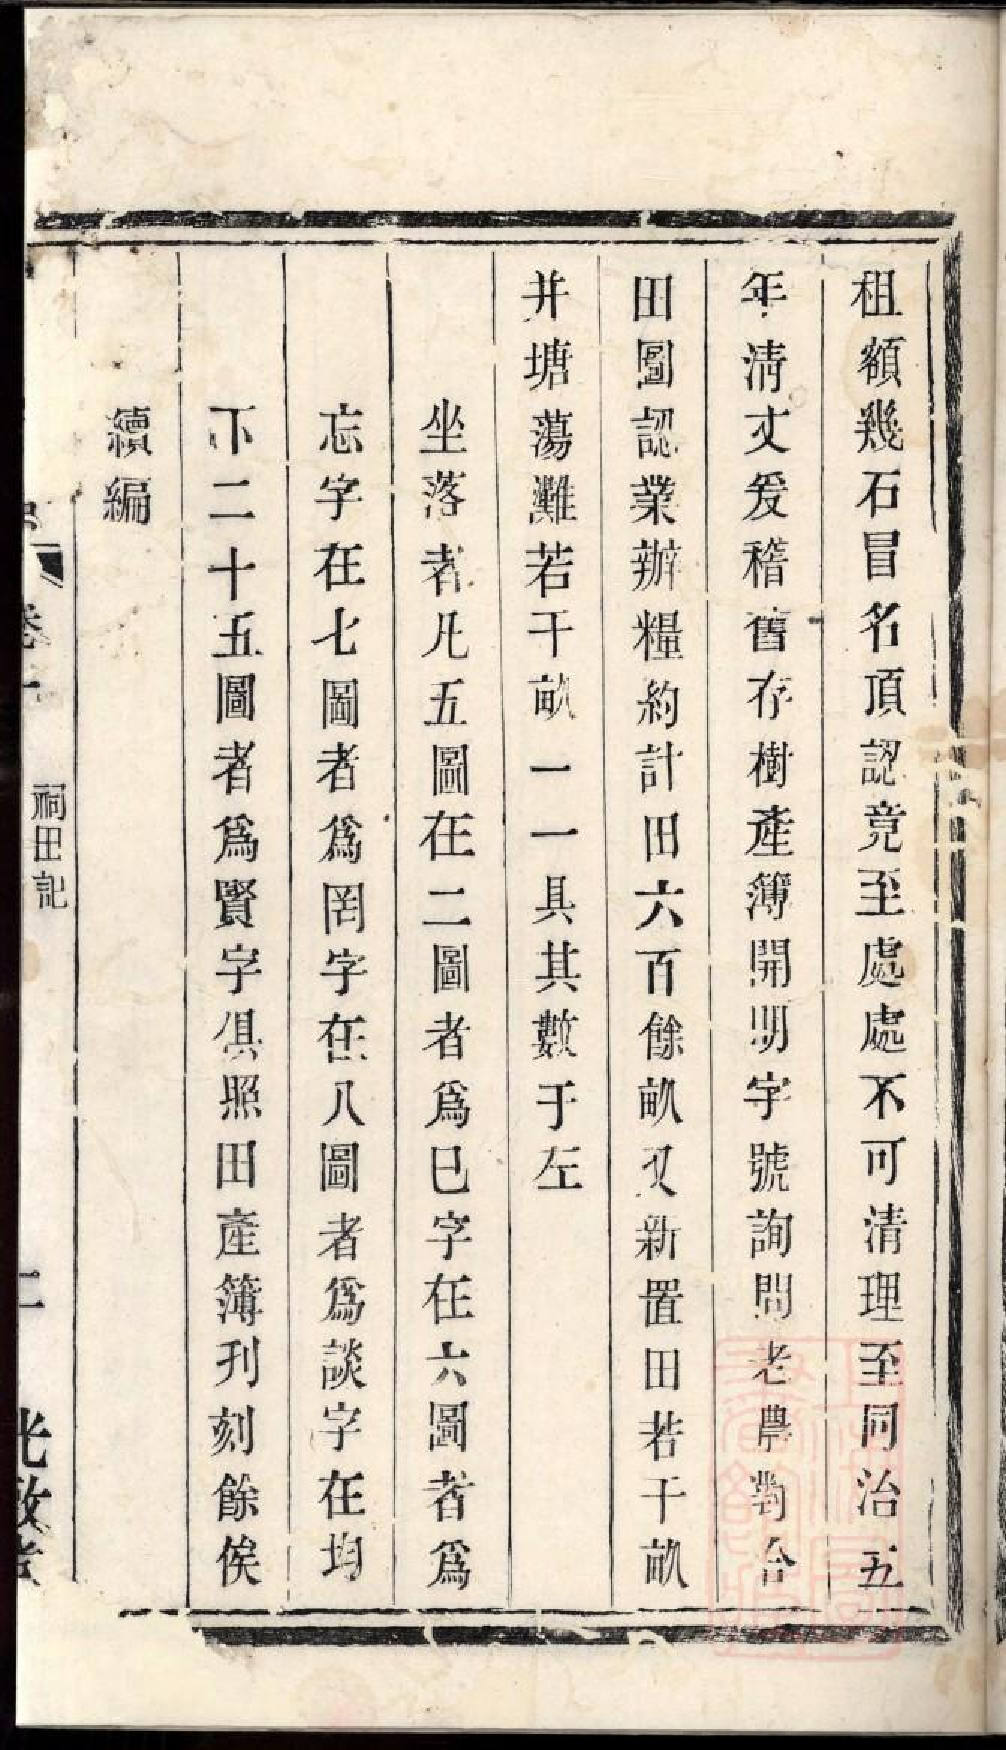 租額幾石冒名頂認竟至處處不可清理至同治五
年清丈爰稽舊存樹產簿開明字號詢問老農對合
田圖認業辦糧約計田六百餘畝又新置田若干畝
并塘蕩灘若干畝一一具其數于左
坐落者凡五圖在二圖者為巳字在六圖者為
忘字在七圖者為罔字在八圖者為談字在均
下二十五圖者為賢字俱照田產簿刊刻餘俟
續編
卷一
祠田記
二
光啟堂